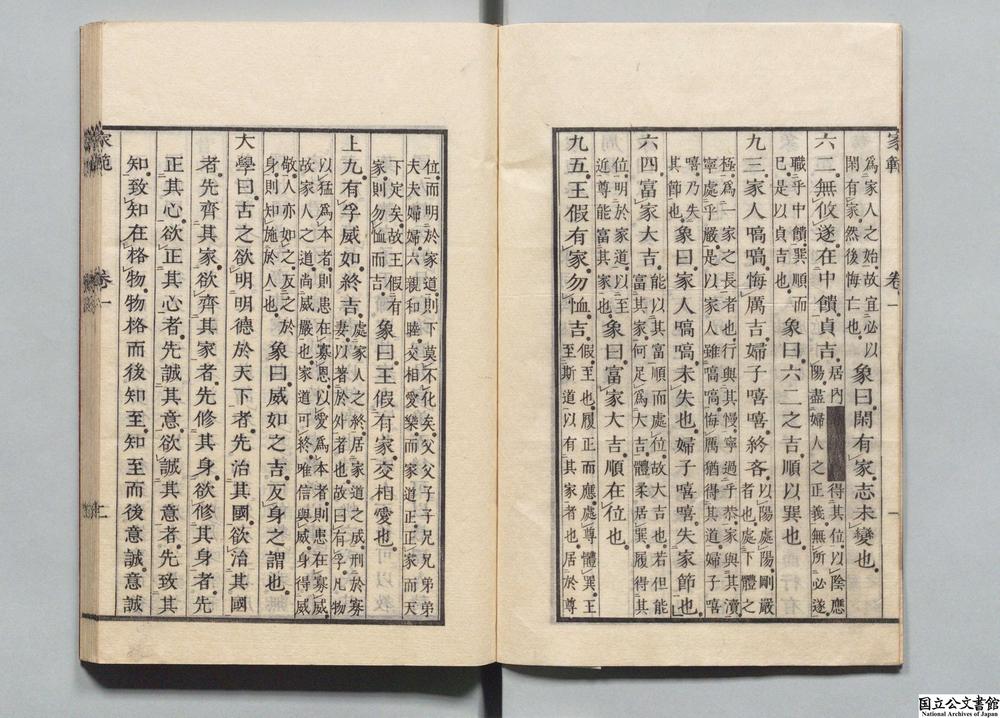 家範 卷一 一
爲家人之始故宜必以
閑有家然後悔亡也
象曰閑有家志未變也
六二無攸遂在中饋貞吉
居內得其位以陰應
陽盡婦人之正義無所必遂
職乎中饋巽順而
已是以貞吉也
象曰六二之吉順以巽也
九三家人嗃嗃悔厲吉婦子嘻嘻終吝
以陽處陽剛嚴
者也處下體之
極爲一家之長者也行與其慢寧過乎恭家與其瀆
寧處乎嚴是以家人雖嗃嗃悔厲猶得其道婦子嘻
嘻乃失
其節也
象曰家人嗃嗃未失也婦子嘻嘻失家節也
六四富家大吉
能以其富順而處位故大吉也若但能
富其家何足爲大吉體柔居巽履得其
位明於家道以至
近尊能富其家也
象曰富家大吉順在位也
九五王假有家勿恤吉
假至也履正而應處尊體巽王
至斯道以有其家者也居於尊
位而明於家道則下莫不化矣父父子子兄兄弟弟
夫夫婦婦六親和睦交相愛樂而家道正正家而天
下定矣故王假有
家則勿恤而吉
象曰王假有家交相愛也
上九有孚威如終吉
處家人之終居家道之成刑於寡
妻以著於外者也故曰有孚凡物
以猛爲本者則患在寡恩以愛爲本者則患在寡威
故家人之道尚威嚴也家道可終唯信與威身得威
敬人亦如之反之於
身則知施於人也
象曰威如之吉反身之謂也
大學曰古之欲明明德於天下者先治其國欲治其國
者先齊其家欲齊其家者先修其身欲修其身者先
正其心欲正其心者先誠其意欲誠其意者先致其
知致知在格物物格而後知至知至而後意誠意誠
家範 卷一 二
国立公文書館
National Archives of Japan